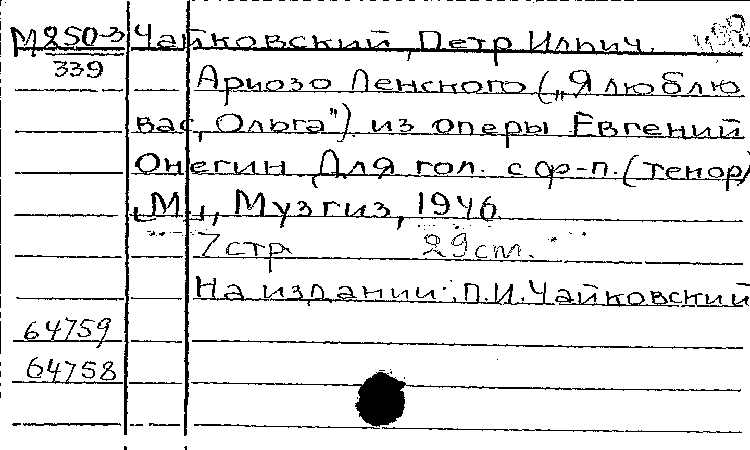 М250-3 Чайковский, Петр Ильич.
339 Ариозо Ленского („Я люблю
вас, Ольга") из оперы Евгений
Онегин Для гол. с ф-п. (тенор)
[М], Музгиз, 1946
7 стр 29 cm.
На издании: П.И. Чайковский
64759
64758